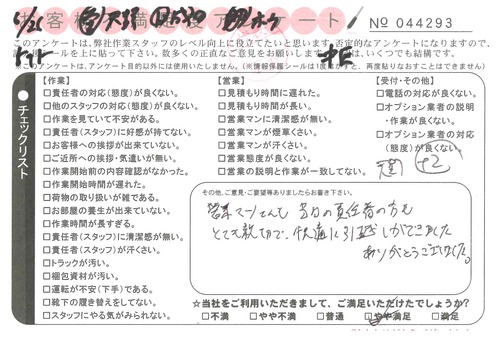 お客様満足度アンケート
No 044293
このアンケートは、弊社作業スタッフのレベル向上に役立てたいと思います。否定的なアンケートになりますので、
シールを上に貼って下さい。数多くの正直なご意見をお願いします。
このアンケートは、アンケート目的以外には使用いたしません。(※情報保護シールは1度はがすと、再度貼りなおすことはできません)
チェックリスト
【作業】
□責任者の対応(態度)が良くない。
□他のスタッフの対応(態度)が良くない。
□作業を見ていて不安がある。
□責任者(スタッフ)に好感が持てない。
□お客様への挨拶が出来ていない。
□ご近所への挨拶・気遣いが無い。
□作業開始前の内容確認がなかった。
□作業開始時間が遅れた。
□荷物の取り扱いが雑である。
□お部屋の養生が出来ていない。
□作業時間が長すぎる。
□責任者(スタッフ)に清潔感が無い。
□責任者(スタッフ)が汗くさい。
□トラックが汚い。
□梱包資材が汚い。
□運転が不安(下手)である。
□靴下の履き替えをしてない。
□スタッフにやる気がみられない。
【営業】
□見積もり時間に遅れた。
□見積もり時間が長い。
□営業マンに清潔感が無い。
□営業マンが煙草くさい。
□営業マンが汗くさい。
□営業態度が良くない。
□営業の説明と作業が一致してない。
【受付・その他】
□電話の対応が良くない。
□オプション業者の説明
・作業が良くない。
□オプション業者の対応
(態度)が良くない。
+2
その他、ご意見・ご要望等ありましたらお書き下さい。
営業マンさんも 当日の責任者の方も
とても親切で、快適に引越しができました
ありがとうございました。
☆当社をご利用いただきまして、ご満足いただけたでしょうか?
□不満 □やや不満 □普通 □やや満足 □満足